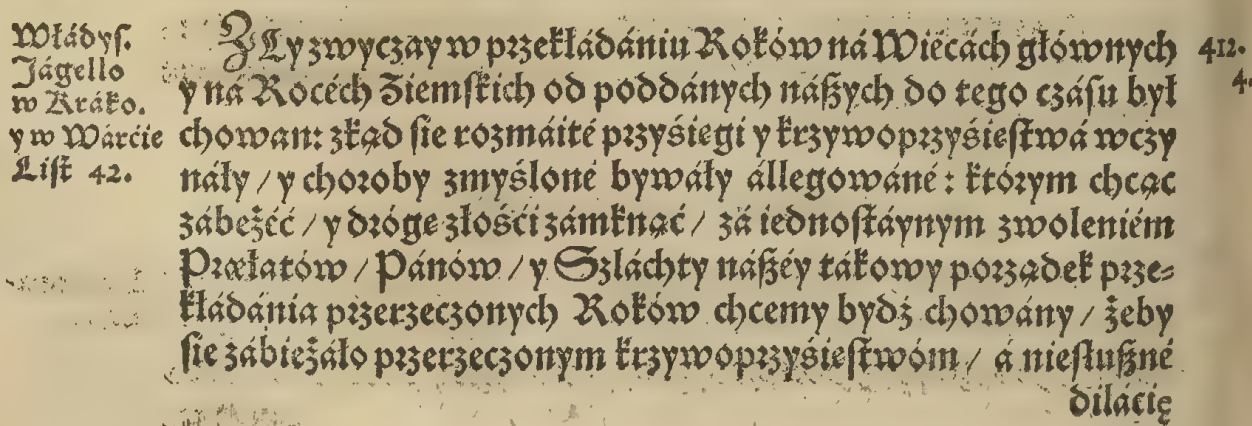 Włádyſ.
Jágełło
w Kráko.
y w Wárcie
Liſt 42.
ZŁy zwyczay w przekłádániu Roków ná Wiécách głównych
y ná Rocéch Ziemſkich od poddánych náßych do tego czáſu był
chowan: zkąd ſie rozmáité przyśiegi y krzywoprzyśieſtwá wczy
náły / y choroby zmyśloné bywáły állegowáné: którym chcąc
zábeżéć / y drógę złośći zámknąć / zá iednoſtáynym zwoleniém
Præłatów / Pánów / y Szláchty náßéy tákowy porządek prze⸗
kłádánia przerzeczonych Roków chcemy bydź chowány / żeby
ſie zábieżáło przerzeczonym krzywoprzyśieſtwóm / á nieſłußné
dilácię
412.